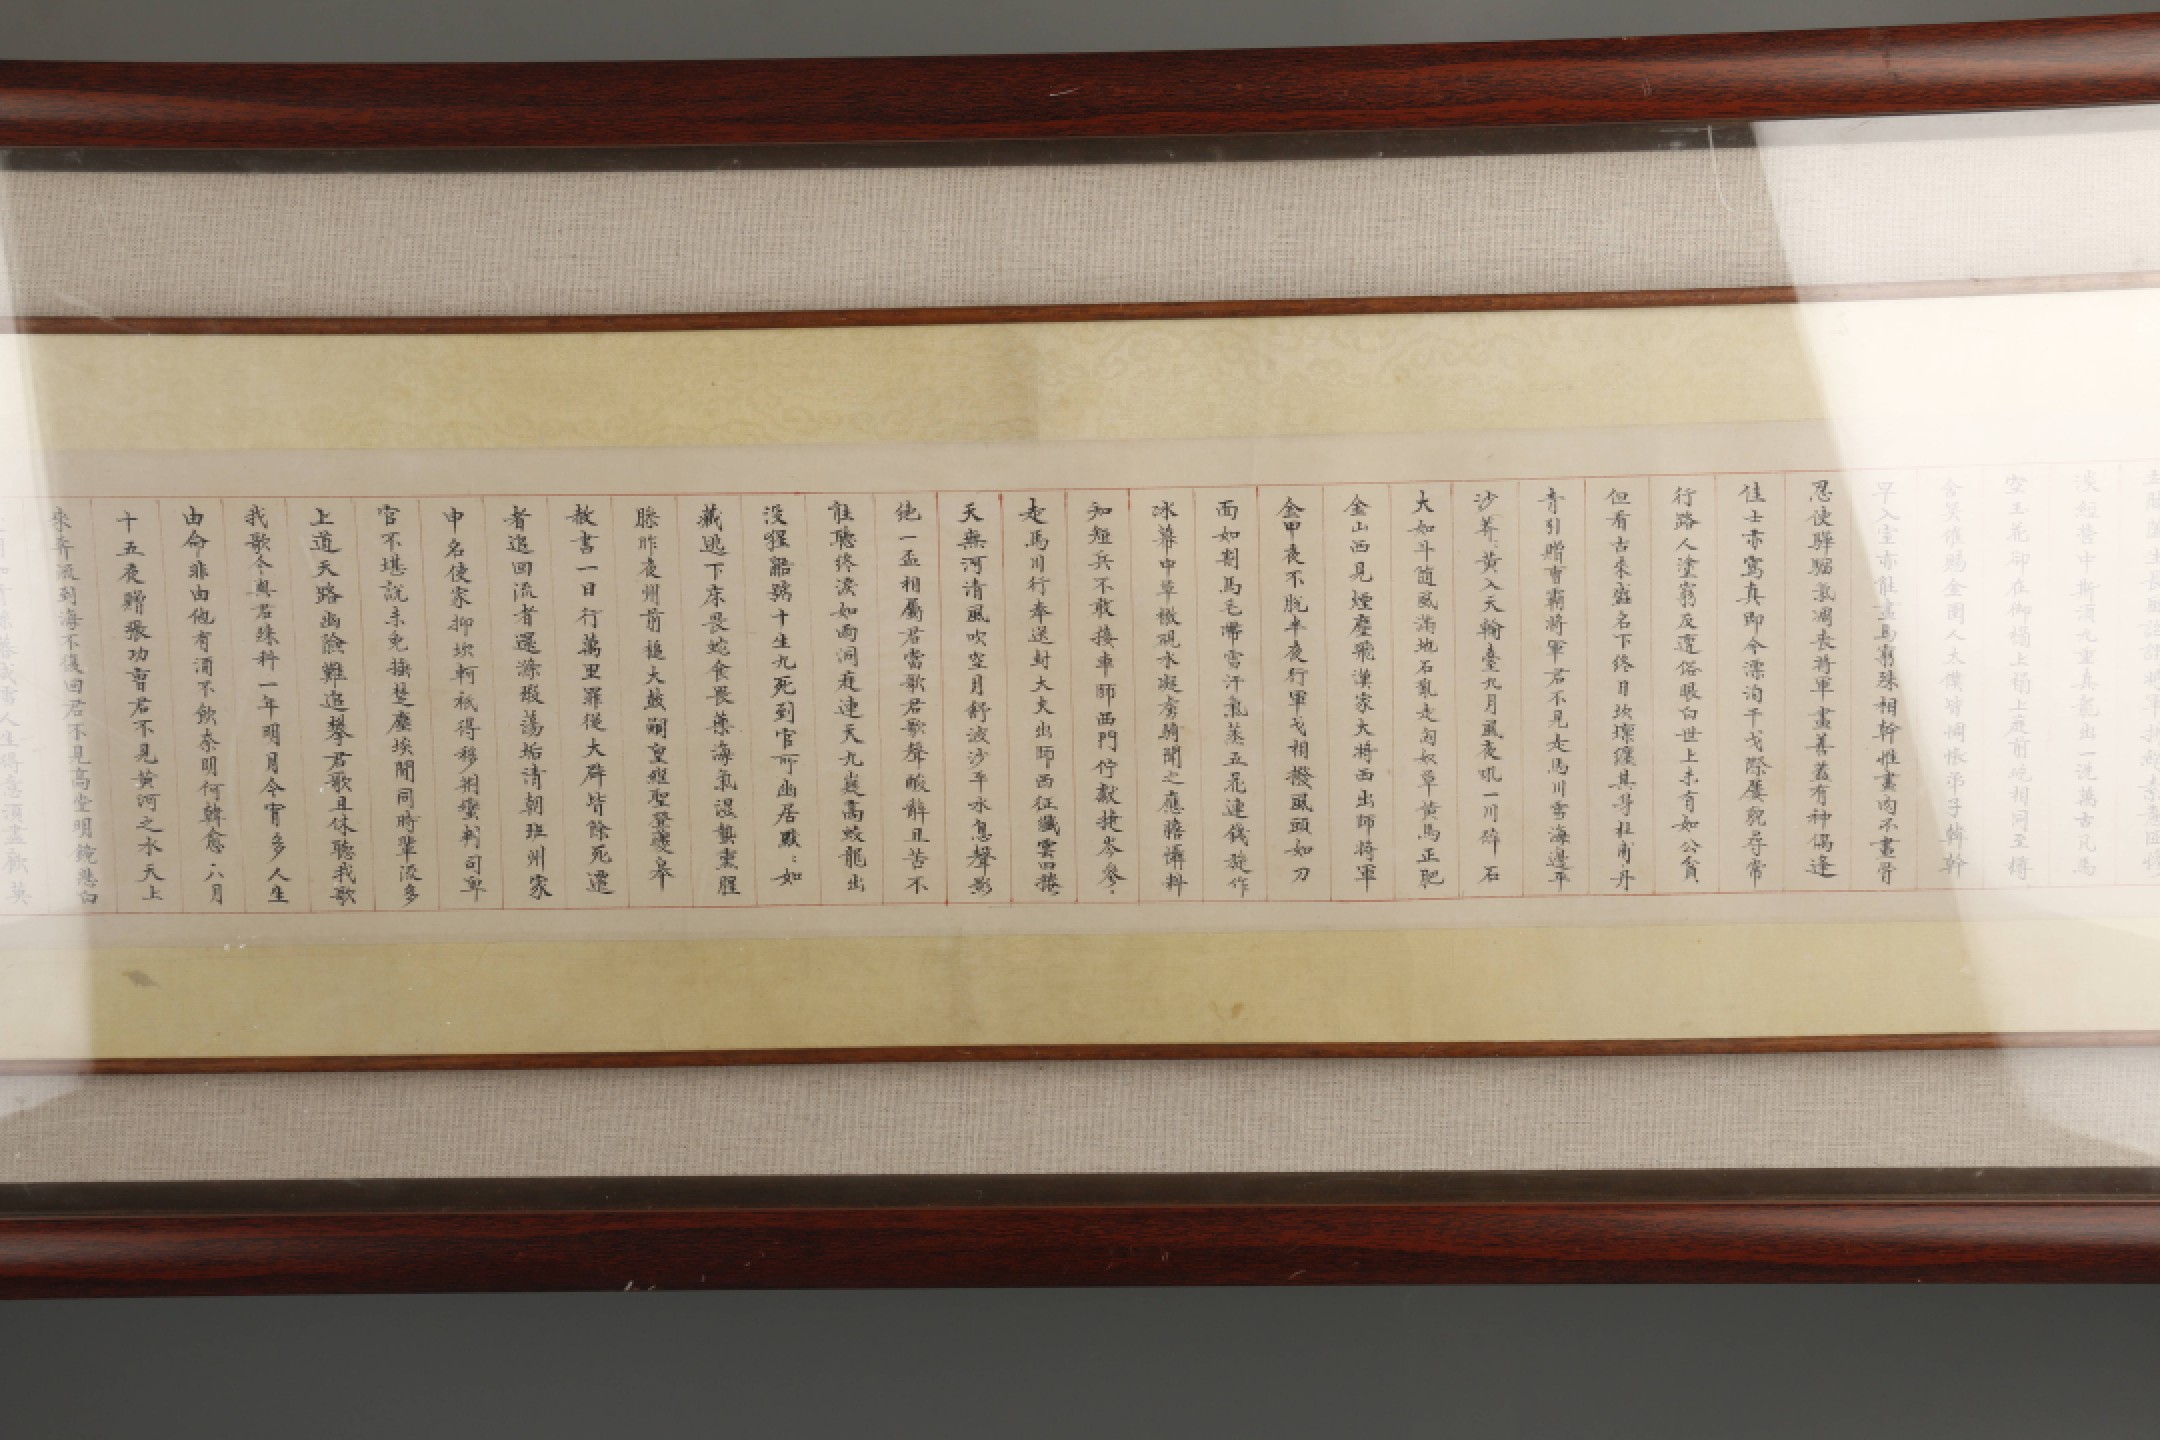 淡經營中斯須九重真龍出一洗萬古凡馬
空玉花卻在御榻上榻上庭前屹相同至尊
含笑催賜金圉人太僕皆惆悵弟子韓幹
早入室亦能畫馬窮殊相幹惟畫肉不畫骨
忍使驊騮氣凋喪將軍畫善蓋有神偶逢
佳士亦寫真即今漂泊干戈際屢貌尋常
行路人塗窮反遭俗眼白世上未有如公貧
但看古來盛名下終日坎壈纏其身杜甫丹
青引贈曹霸將軍君不見走馬川雪海邊平
沙莽:黃入天輪臺九月風夜吼一川碎石
大如斗隨風滿地石亂走匈奴草黃馬正肥
金山西見煙塵飛漢家大將西出師將軍
金甲夜不脫半夜行軍戈相撥風頭如刀
面如割馬毛帶雪汗氣蒸五花連錢旋作
冰幕中草檄硯水凝虜騎聞之應膽懾料
知短兵不敢接車師西門佇獻捷岑參
走馬川行奉送封大夫出師西征纖雲四捲
天無河清風吹空月舒波沙平水息聲影
絕一盃相屬君當歌君歌聲酸辭且苦不
能聽終淚如雨洞庭連天九嶷高蛟龍出
沒猩鼯號十生九死到官所幽居默:如
藏逃下床畏蛇食畏藥海氣濕蟄熏腥
臊昨夜州前槌大鼓嗣皇繼聖登夔皋
赦書一日行萬里罪從大辟皆除死遷
者追回流者還滌瑕蕩垢清朝班州家
申名使家抑坎軻祗得移荊蠻判司卑
官不堪說未免捶楚塵埃間同時輩流多
上道天路幽險難追攀君歌且休聽我歌
我歌今與君殊科一年明月今宵多人生
由命非由他有酒不飲奈明何韓愈八月
十五夜贈張功曹君不見黃河之水天上
來奔流到海不復回君不見高堂明鏡悲白